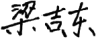 梁吉东